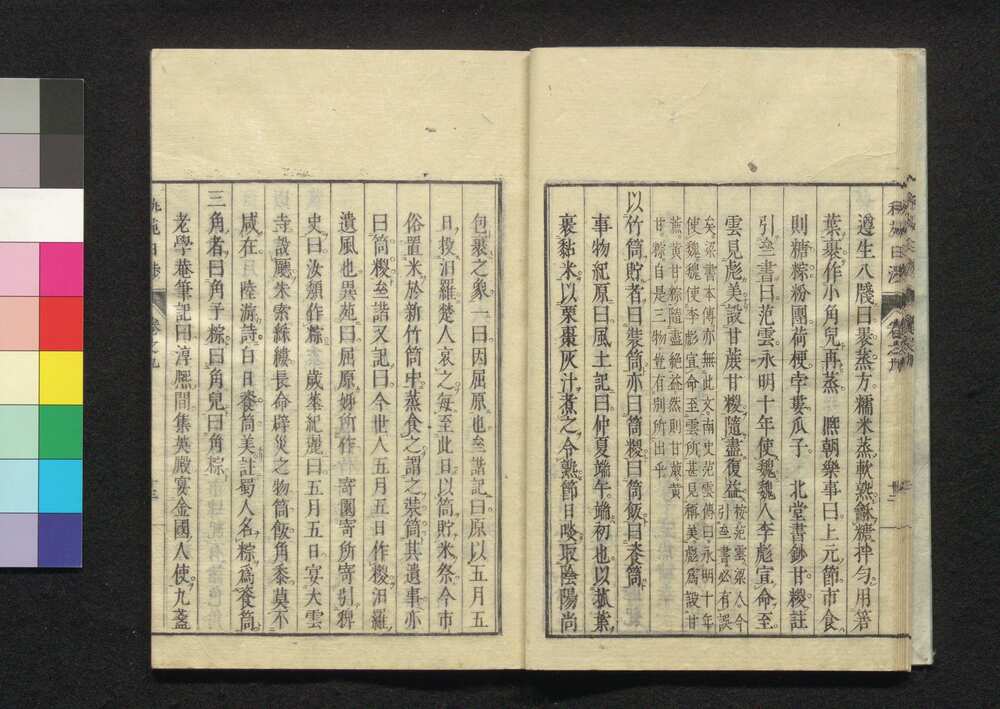 遵生八牋曰裹蒸方糯米蒸軟熟龢糖拌勻用箬
葉裹作小角兒再蒸 熈朝樂事曰上元節市食
則糖粽粉團荷梗孛婁瓜子 北堂書鈔甘糭註
引叄書曰范雲永明十年使魏魏人李彪宣命至
雲見彪美設甘蔗甘糭隨盡復益
按范雲梁人今
引叄書必有誤
矣梁書本傳亦無此文南史范雲傳曰永明十年
使魏魏使李彪宣命至雲所甚見稱美彪爲設甘
蔗黃甘粽隨盡絕益然則甘蔗黃
甘粽自是三物豈有別所出乎
以竹筒貯者曰裝筒亦曰筒糭曰筒飯曰䬳筒
事物紀原曰風土記曰仲夏端午端初也以菰葉
裹黏米以栗棗灰汁煮之令熟節日啖取陰陽尚
包裹之象一曰因屈原也叄諧記曰原以五月五
日投汨羅楚人哀之每至此日以筒貯米祭今市
俗置米於新竹筒中蒸食之謂之裝筒其遺事亦
曰筒糭叄諧又記曰今世人五月五日作糭汨羅
遺風也異苑曰屈原姊所作 寄園寄所寄引稗
史曰汝穎作粽 歲華紀麗曰五月五日宴大雲
寺設㕔朱索綵縷長命辟災之物筒飯角黍莫不
咸在 陸游詩白日䬳筒美註蜀人名粽爲䬳筒
三角者曰角子粽曰角兒曰角粽
老學菴筆記曰淳熈間集英殿宴金國人使九盞